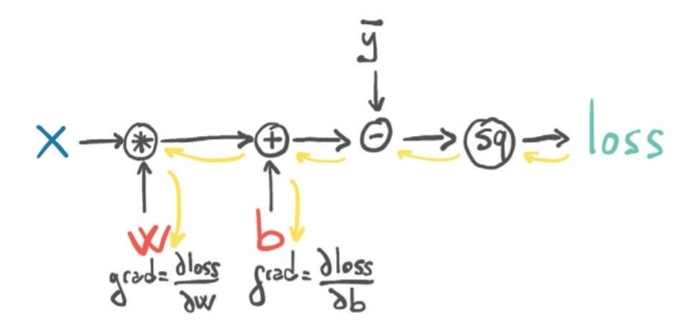 ȳ
X * + - sq loss
w b
grad = ∂loss/∂w grad = ∂loss/∂b